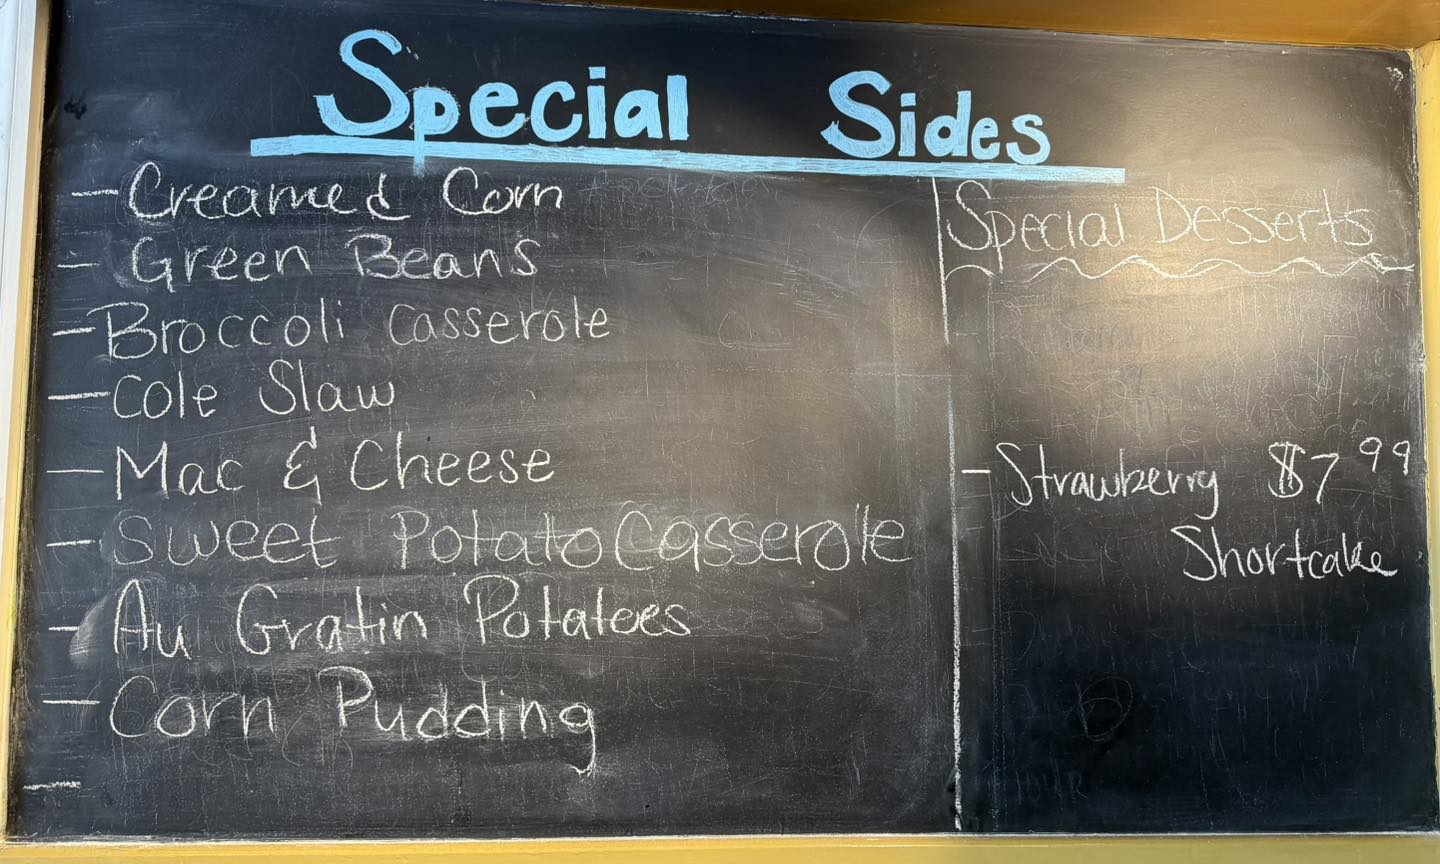 Special Sides
- Creamed Corn
- Green Beans
- Broccoli Casserole
- Cole Slaw
- Mac & Cheese
- Sweet Potato Casserole
- Au Gratin Potatoes
- Corn Pudding
-
Special Desserts
- Strawberry $7.99
Shortcake